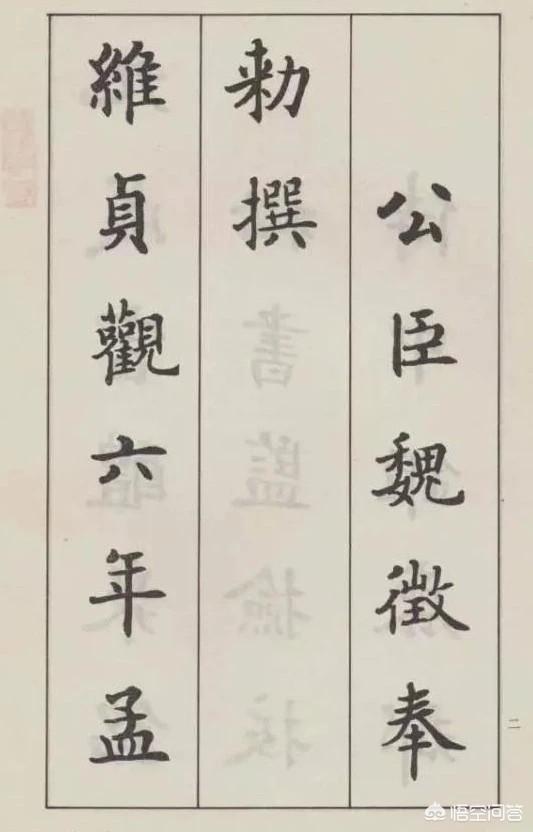 公臣魏徵奉
勑撰
維貞觀六年孟
二
悟空问答